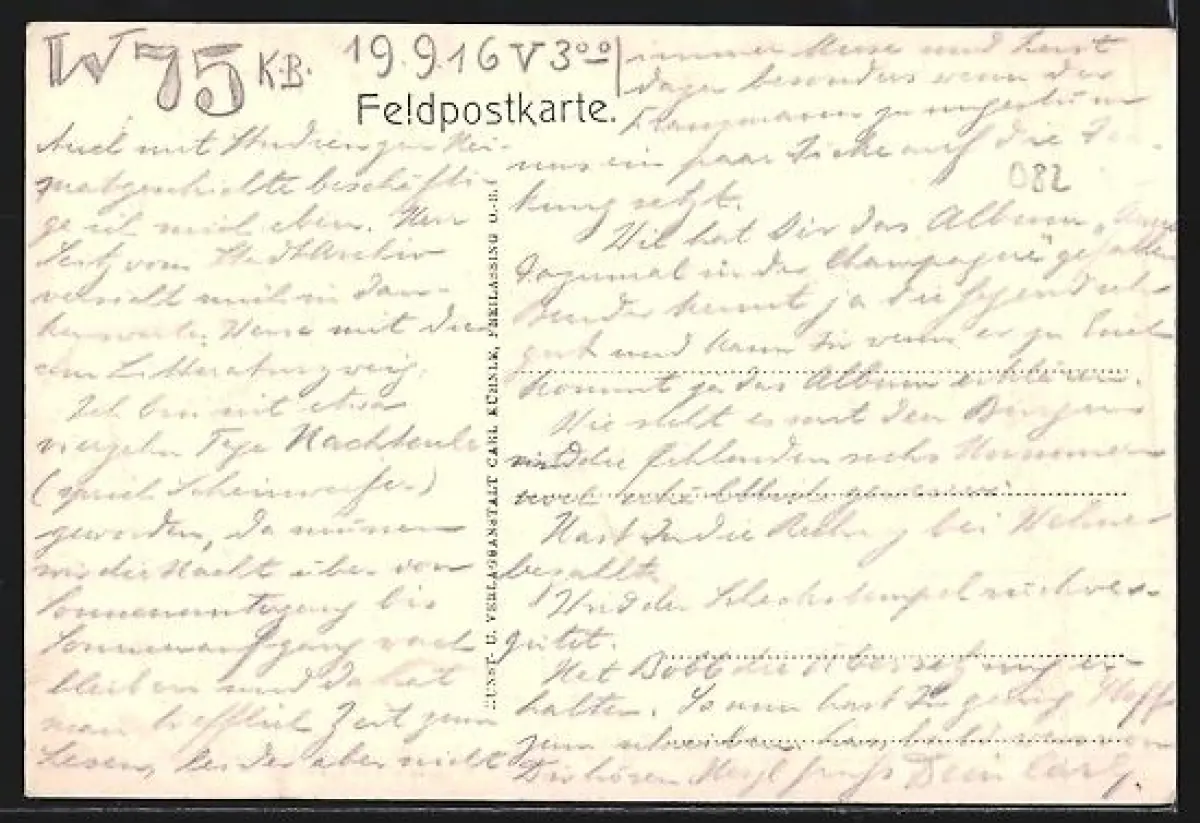 W 75 K.B. 19.9.16 V 3⁰⁰
Feldpostkarte.
Auch mit Studien zur Hei-
matgeschichte beschäfti-
ge ich mich eben. Herr
vom Stadtarchiv
versieht mich in dan-
kenswerter Weise mit
Litteratur
Ich bin seit etwa
vierzehn Tage Nachteule
(sprich Scheinwerfer)
geworden, da müssen
wir die Nacht über von
Sonnenuntergang bis
Sonnenaufgang wach
bleiben und da hat
man trefflich Zeit zum
Lesen, leider aber nicht
immer Muse und Lust
dazu besonders wenn der
Franzmann zu ungestüm
uns ein paar Dicke auf die De-
kung setzt.
Wie hat Dir das Album
dazumal in der Champagne" gefallen
Bruder kennt ja die Gegend sehr
gut und kann Dir wenn er zu Euch
kommt ja das Album erklären.
Wie steht es mit den
sind die fehlenden sechs Nummern
noch erhältlich gewesen.
Hast Du die Rechng bei
bezahlt.
Und der rückver-
gütet.
Hat die Übersetzung er-
halten. So nun hast Du genug Stoff
zum schreiben, von
Dir hören Herzl. grüßt Dein Carl.
082
KUNST- U. VERLAGSANSTALT CARL KÜHNLE, FREILASSING O.-B.